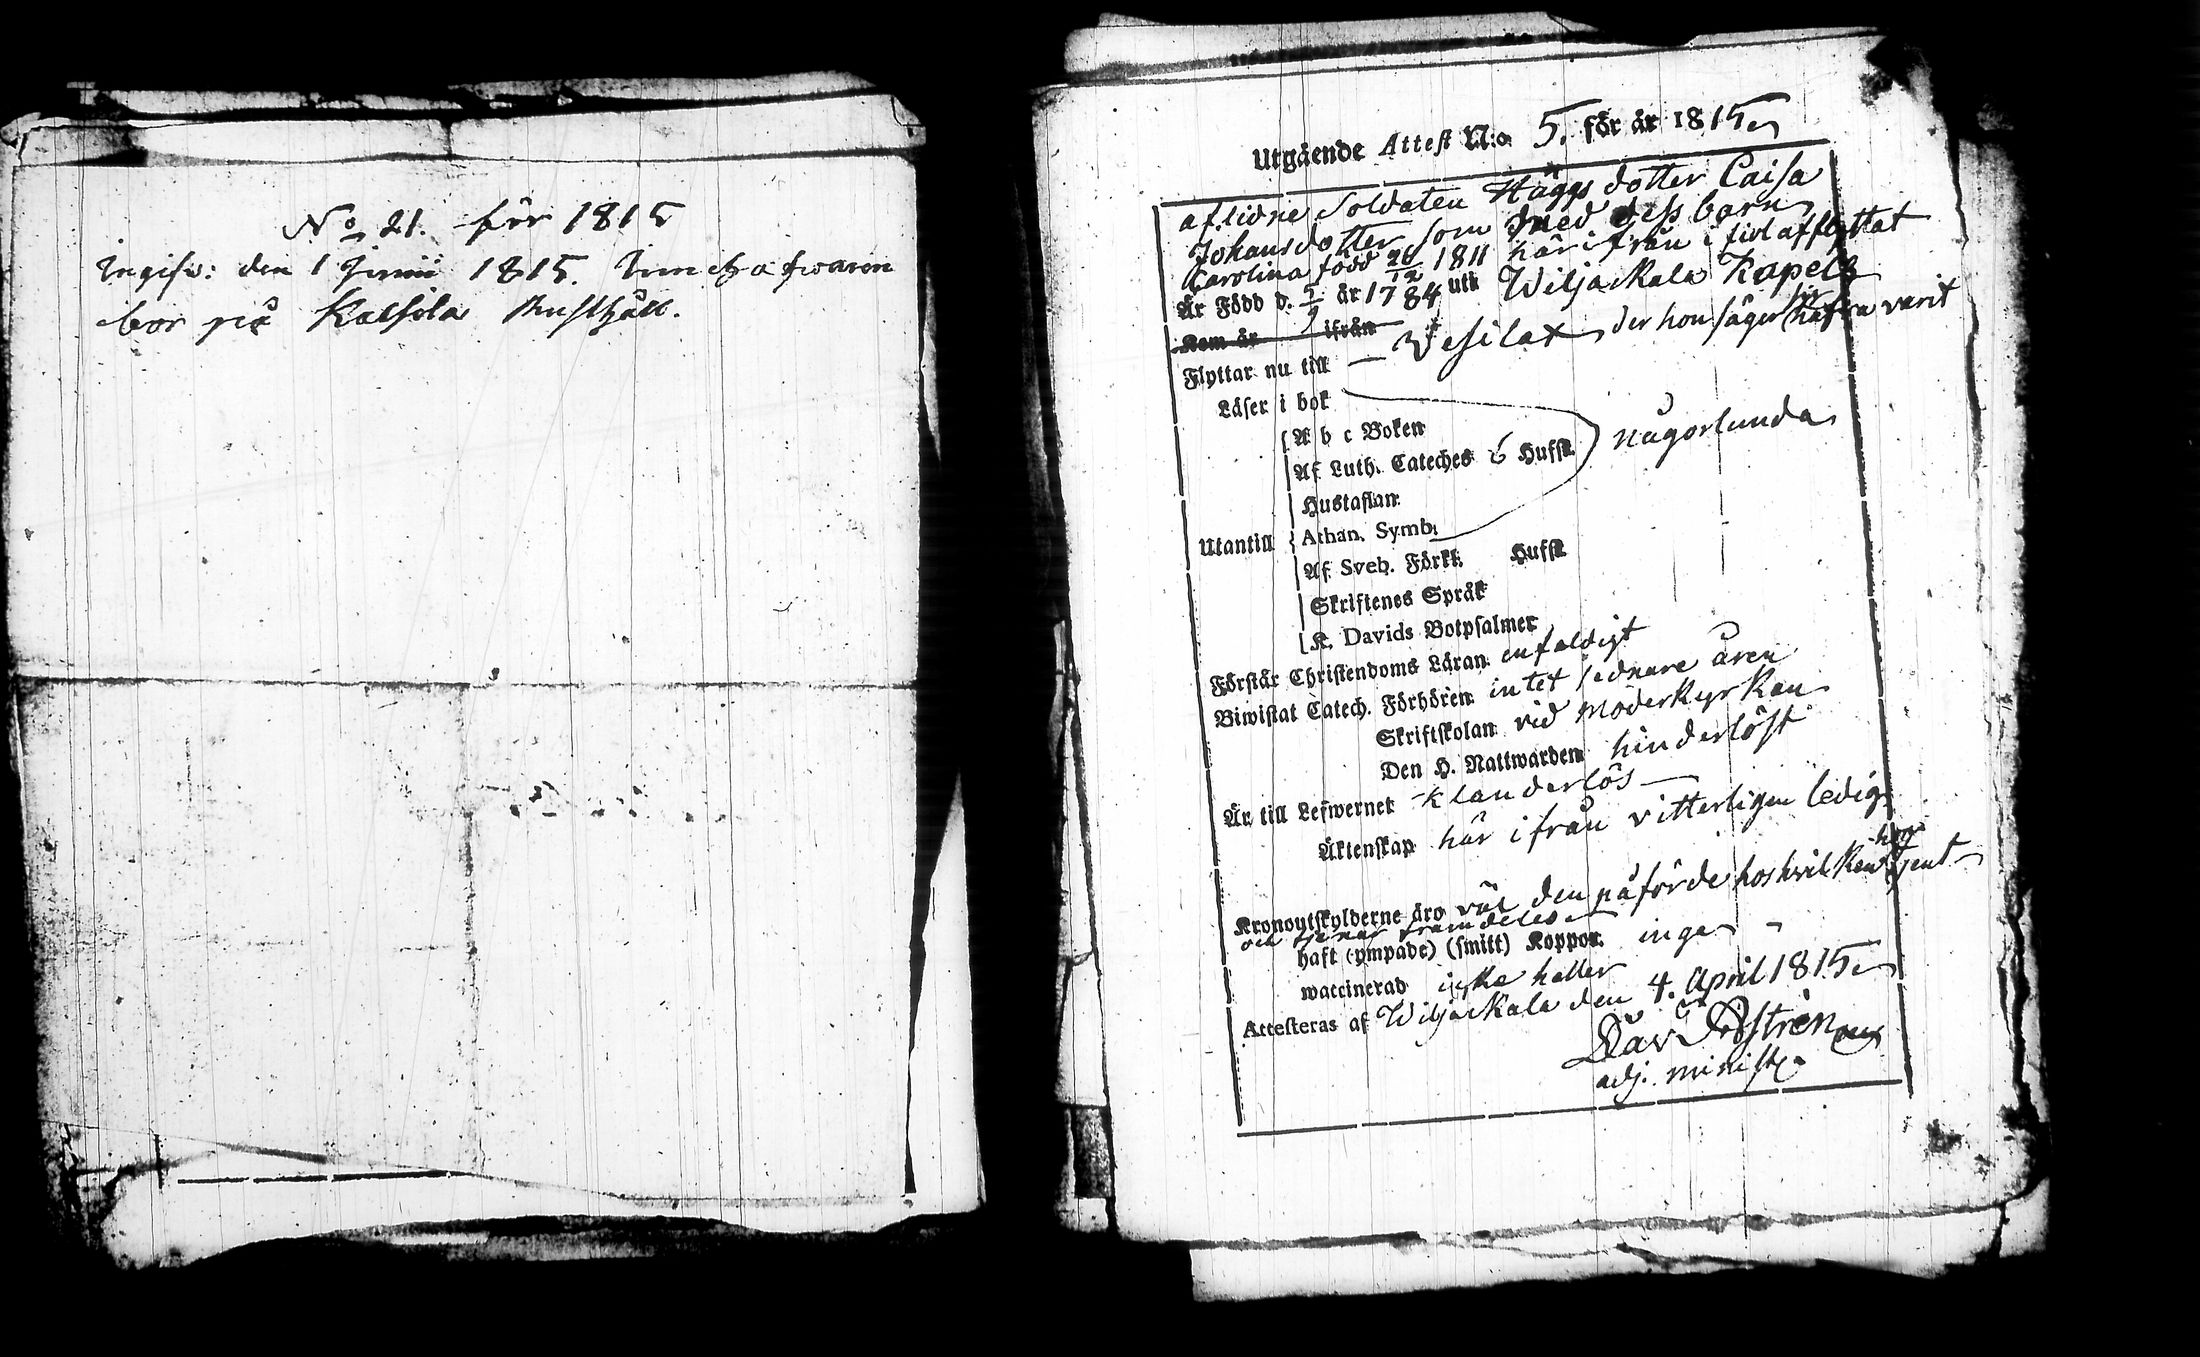 No 21. för 1815
Ingifw: den 1 Junii 1815.
bor på Kalsila Rusthåll.
Utgående Attest N:o 5. för år 1815
aflidne Soldaten Häggs dotter Caisa
Johansdotter som med dess barn
Carolina född 26/12 1811 härifrån i fiol afflyttat
Är Född d. 5/9 år 1784 uti Wiljakkala Kapell
Kom år ifrån
Flyttar nu till — Vesilax der hon säger sig hafva varit
Läser i bok
A b c Boken
Af Luth. Cateches 6 Hufst. någorlunda
Hustaflan
Utantill Athan. Symb.
Af Sveb. Förkl. Hufst
Skriftenes Språk
K. Davids Botpsalmer
Förstår Christendoms Läran enfaldigt
Biwistat Catech. Förhören intet sednare åren
Skriftskolan vid Moderkyrkan
Den H. Nattwarden hinderlöst
Är till Lefwernet klanderlös
Äktenskap här ifrån vitterligen ledig
Kronoutskylderne äro väl den påförde hos hvilken hon tjent
och tjenar framdeles
haft (ympade) (smitt) Koppor. inga
waccinerad icke heller
Attesteras af Wiljakkala den 4. April 1815
Dav Åström
adj. minist.